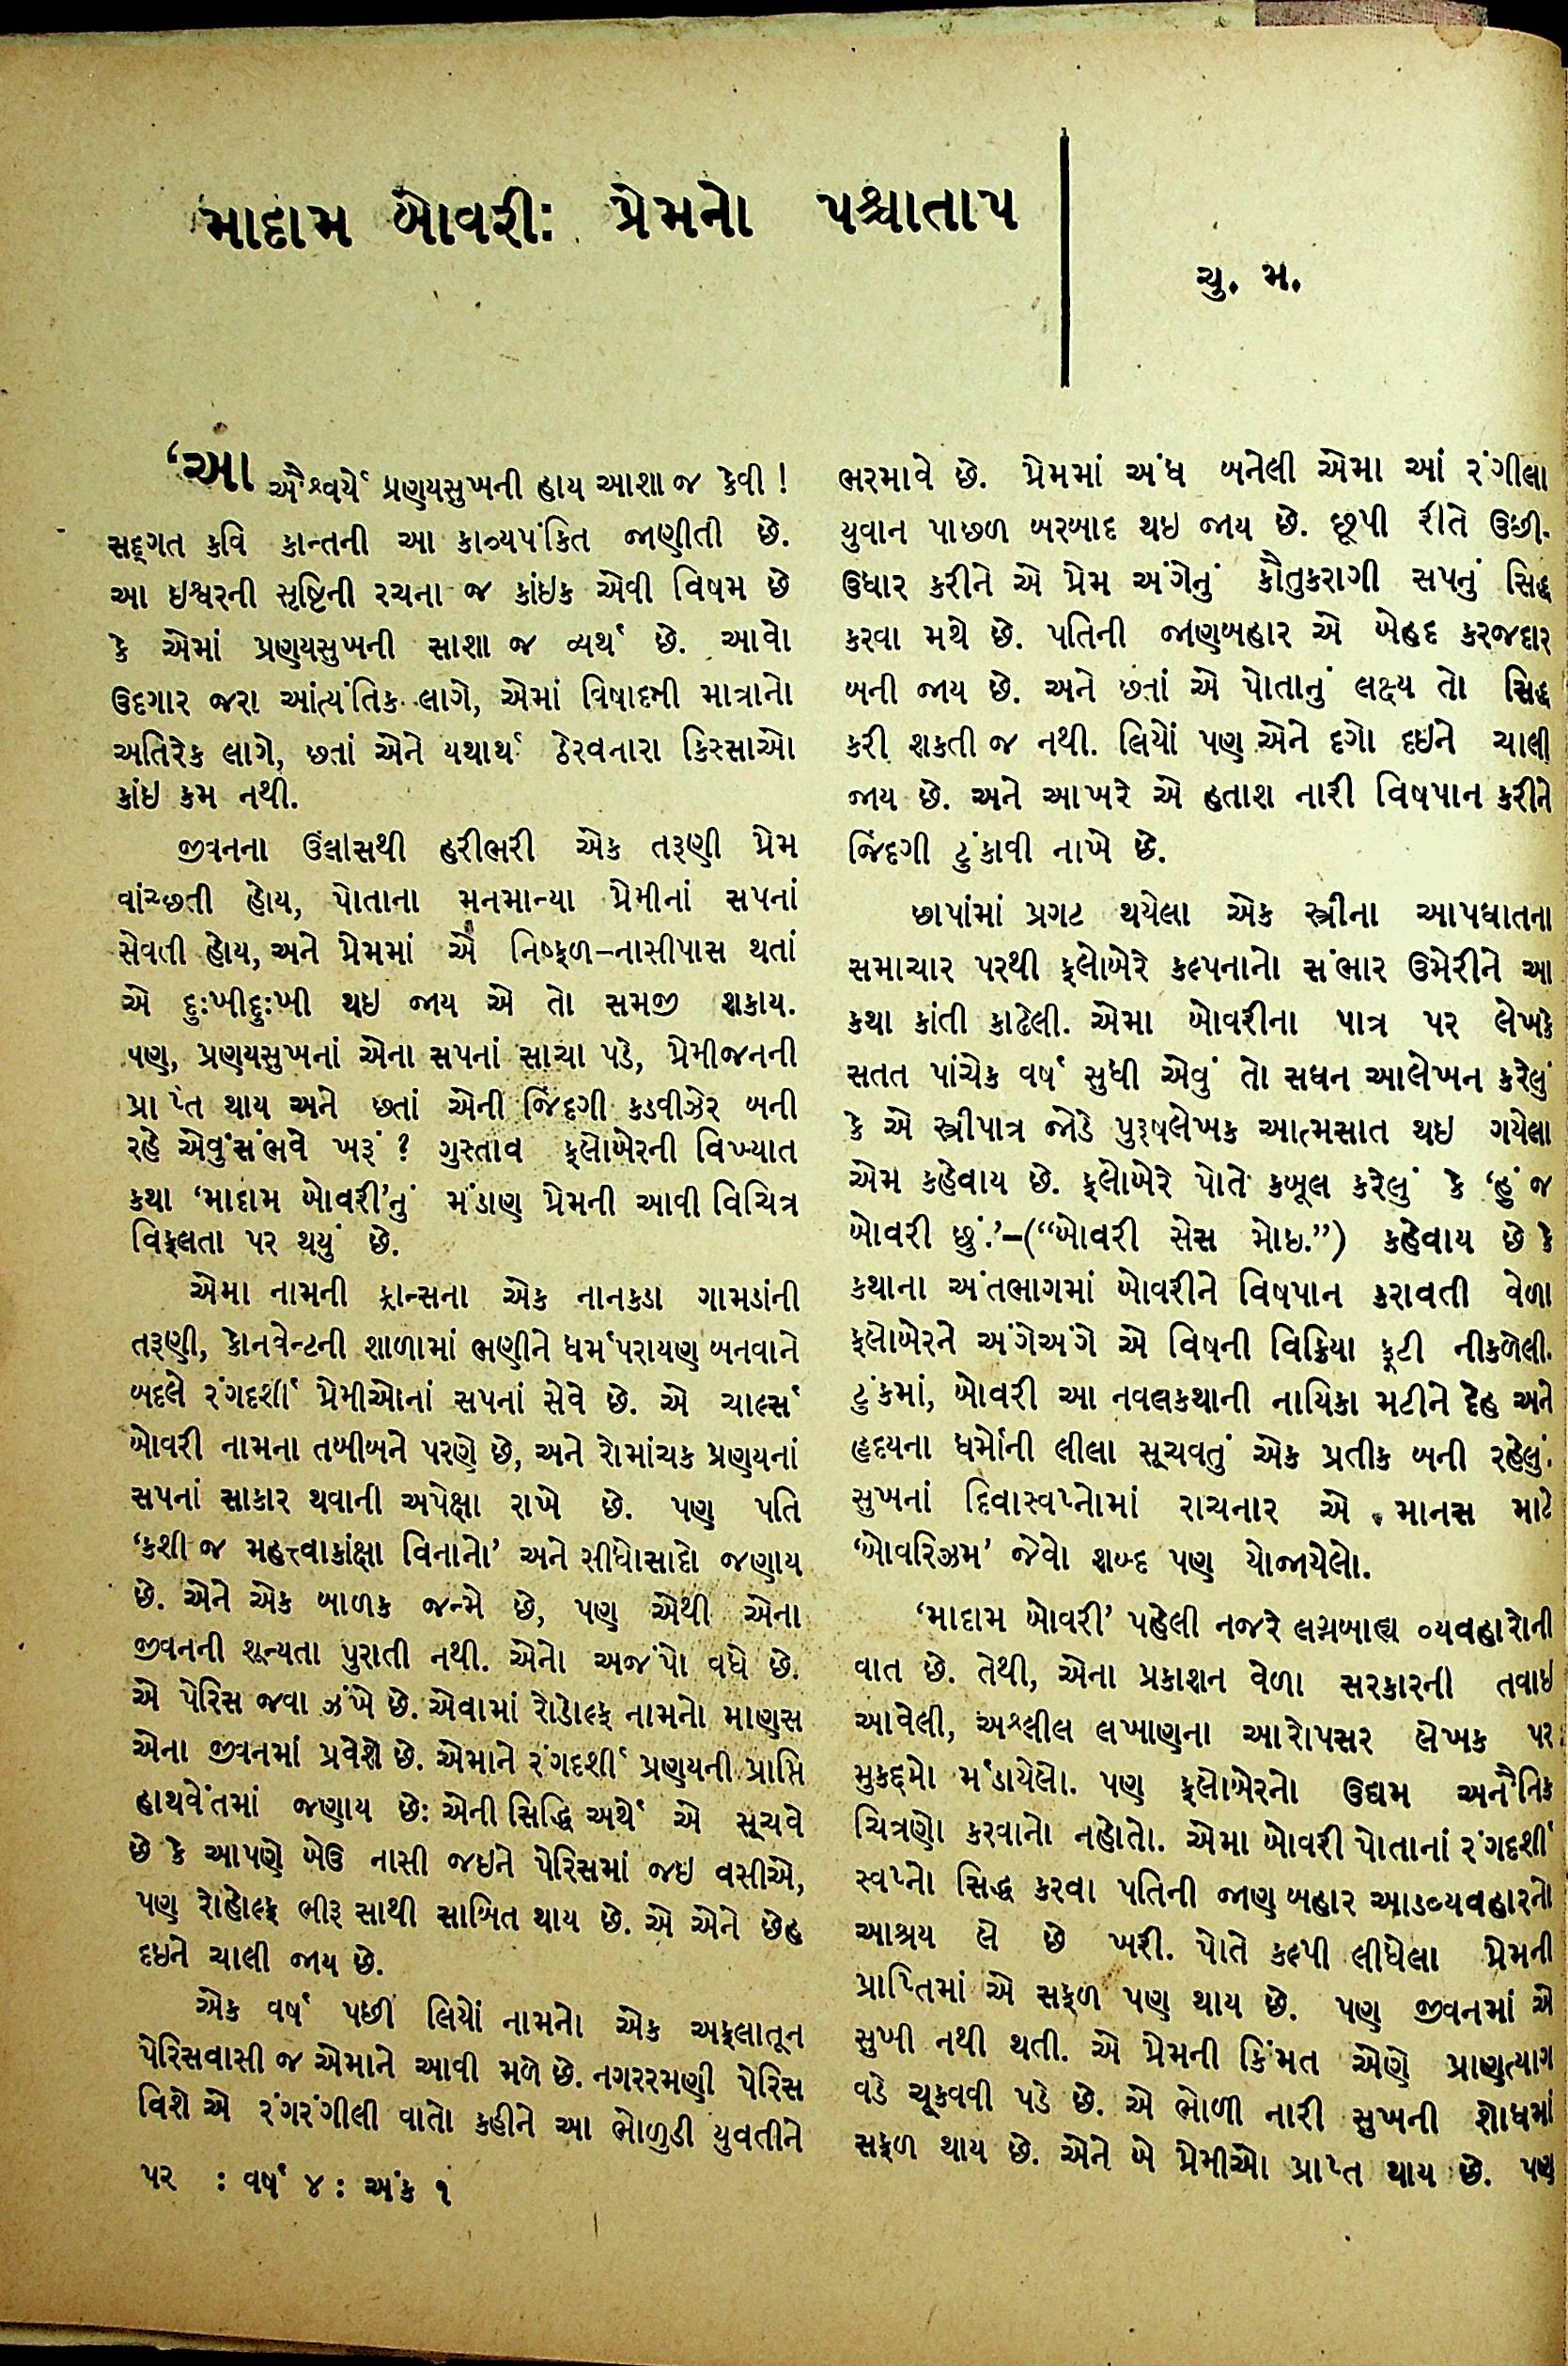 માદામ બોવરી: પ્રેમનો પશ્ચાતાપ
ચુ. મ.
‘આ ઐશ્વર્યે પ્રણયસુખની હાય આશા જ કેવી !
સદ્ગત કવિ કાન્તની આ કાવ્યપંકિત જાણીતી છે.
આ ઇશ્વરની સૃષ્ટિની રચના જ કાંઇક એવી વિષમ છે
કે એમાં પ્રણયસુખની સાશા જ વ્યર્થ છે. આવો
ઉદગાર જરા આંત્યંતિક લાગે, એમાં વિષાદની માત્રાનો
અતિરેક લાગે, છતાં એને યથાર્થ ઠેરવનારા કિસ્સાઓ
કાંઇ કમ નથી.
જીવનના ઉલ્લાસથી હરીભરી એક તરૂણી પ્રેમ
વાંચ્છતી હોય, પોતાના મનમાન્યા પ્રેમીનાં સપનાં
સેવતી હોય, અને પ્રેમમાં એ નિષ્ફળ–નાસીપાસ થતાં
એ દુ:ખીદુ:ખી થઇ જાય એ તો સમજી શકાય.
પણ, પ્રણયસુખનાં એના સપનાં સાચા પડે, પ્રેમીજનની
પ્રાપ્ત થાય અને છતાં એની જિંદગી કડવીઝેર બની
રહે એવું સંભવે ખરૂં ? ગુસ્તાવ ફ્લોબેરની વિખ્યાત
કથા ‘માદામ બોવરી’નું મંડાણ પ્રેમની આવી વિચિત્ર
વિફલતા પર થયું છે.
એમા નામની ફ્રાન્સના એક નાનકડા ગામડાંની
તરૂણી, કોનવેન્ટની શાળામાં ભણીને ધર્મપરાયણ બનવાને
બદલે રંગદર્શી પ્રેમીઓનાં સપનાં સેવે છે. એ ચાર્લ્સ
બોવરી નામના તબીબને પરણે છે, અને રોમાંચક પ્રણયનાં
સપનાં સાકાર થવાની અપેક્ષા રાખે છે. પણ પતિ
‘કશી જ મહત્ત્વાકાંક્ષા વિનાનો’ અને સીધોસાદો જણાય
છે. એને એક બાળક જન્મે છે, પણ એથી એના
જીવનની શૂન્યતા પુરાતી નથી. એનો અજંપો વધે છે.
એ પેરિસ જવા ઝંખે છે. એવામાં રોડોલ્ફ નામનો માણસ
એના જીવનમાં પ્રવેશે છે. એમાને રંગદર્શી પ્રણયની પ્રાપ્તિ
હાથવેંતમાં જણાય છે: એની સિદ્ધિ અર્થે એ સૂચવે
છે કે આપણે બેઉ નાસી જઇને પેરિસમાં જઇ વસીએ,
પણ રોહોલ્ફ ભીરૂ સાથી સાબિત થાય છે. એ એને છેહ
દઇને ચાલી જાય છે.
એક વર્ષ પછી લિયોં નામનો એક અફલાતૂન
પેરિસવાસી જ એમાને આવી મળે છે. નગરરમણી પેરિસ
વિશે એ રંગરંગીલી વાતો કહીને આ ભોળુડી યુવતીને
ભરમાવે છે. પ્રેમમાં અંધ બનેલી એમા આં રંગીલા
યુવાન પાછળ બરબાદ થઇ જાય છે. છૂપી રીતે ઉછી-
ઉધાર કરીને એ પ્રેમ અંગેનું કૌતુકરાગી સપનું સિદ્ધ
કરવા મથે છે. પતિની જાણબહાર એ બેહદ કરજદાર
બની જાય છે. અને છતાં એ પોતાનું લક્ષ્ય તો સિદ્ધ
કરી શકતી જ નથી. લિયોં પણ એને દગો દઇને ચાલી
જાય છે. અને આખરે એ હતાશ નારી વિષપાન કરીને
જિંદગી ટુંકાવી નાખે છે.
છાપાંમાં પ્રગટ થયેલા એક સ્ત્રીના આપઘાતના
સમાચાર પરથી ફ્લોબેરે કલ્પનાનો સંભાર ઉમેરીને આ
કથા કાંતી કાઢેલી. એમા બોવરીના પાત્ર પર લેખકે
સતત પાંચેક વર્ષ સુધી એવું તો સઘન આલેખન કરેલું
કે એ સ્ત્રીપાત્ર જોડે પુરૂષલેખક આત્મસાત થઇ ગયેલા
એમ કહેવાય છે. ફ્લોબેરે પોતે કબૂલ કરેલું કે ‘હું જ
બોવરી છું.’–(“બોવરી સેસ મોઇ.”) કહેવાય છે કે
કથાના અંતભાગમાં બોવરીને વિષપાન કરાવતી વેળા
ફ્લોબેરને અંગેઅંગે એ વિષની વિક્રિયા ફૂટી નીકળેલી.
ટુંકમાં, બોવરી આ નવલકથાની નાયિકા મટીને દેહ અને
હૃદયના ધર્મોની લીલા સૂચવતું એક પ્રતીક બની રહેલું.
સુખનાં દિવાસ્વપ્નોમાં રાચનાર એ માનસ માટે
‘બોવરિઝમ’ જેવો શબ્દ પણ યોજાયેલો.
‘માદામ બોવરી’ પહેલી નજરે લગ્નબાહ્ય વ્યવહારોની
વાત છે. તેથી, એના પ્રકાશન વેળા સરકારની તવાઇ
આવેલી, અશ્લીલ લખાણના આરોપસર લેખક પર
મુકદ્દમો મંડાયેલો. પણ ફ્લોબેરનો ઉદ્યમ અનૈતિક
ચિત્રણો કરવાનો નહોતો. એમા બોવરી પોતાનાં રંગદર્શી
સ્વપ્નો સિદ્ધ કરવા પતિની જાણ બહાર આડવ્યવહારનો
આશ્રય લે છે ખરી. પોતે કલ્પી લીધેલા પ્રેમની
પ્રાપ્તિમાં એ સફળ પણ થાય છે. પણ જીવનમાં એ
સુખી નથી થતી. એ પ્રેમની કિંમત એણે પ્રાણત્યાગ
વડે ચૂકવવી પડે છે. એ ભોળી નારી સુખની શોધમાં
સફળ થાય છે. એને બે પ્રેમીઓ પ્રાપ્ત થાય છે. પણ
પર : વર્ષ ૪ : અંક ૧